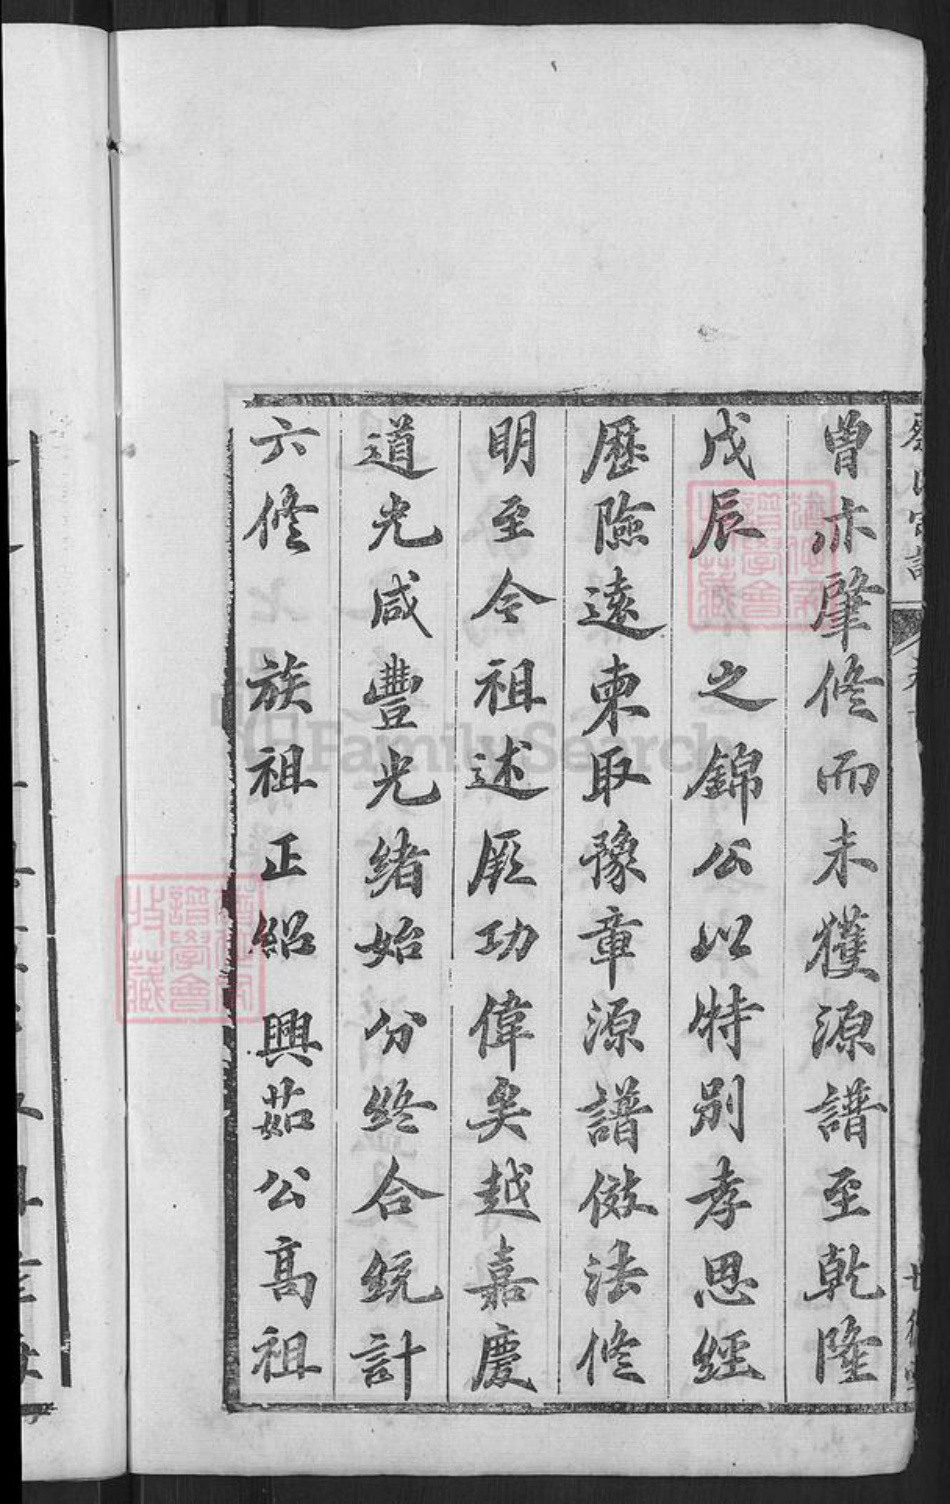 曾亦肇修而未獲源譜至乾隆
戊辰之錦公以特別孝思經
歷險遠東取豫章源譜倣法修
明至今祖述厥功偉矣越嘉慶
道光咸豐光緒始分終合統計
六修 族祖正紹興茹公高祖
譜學會
收藏
譜學會
收藏
FamilySearch